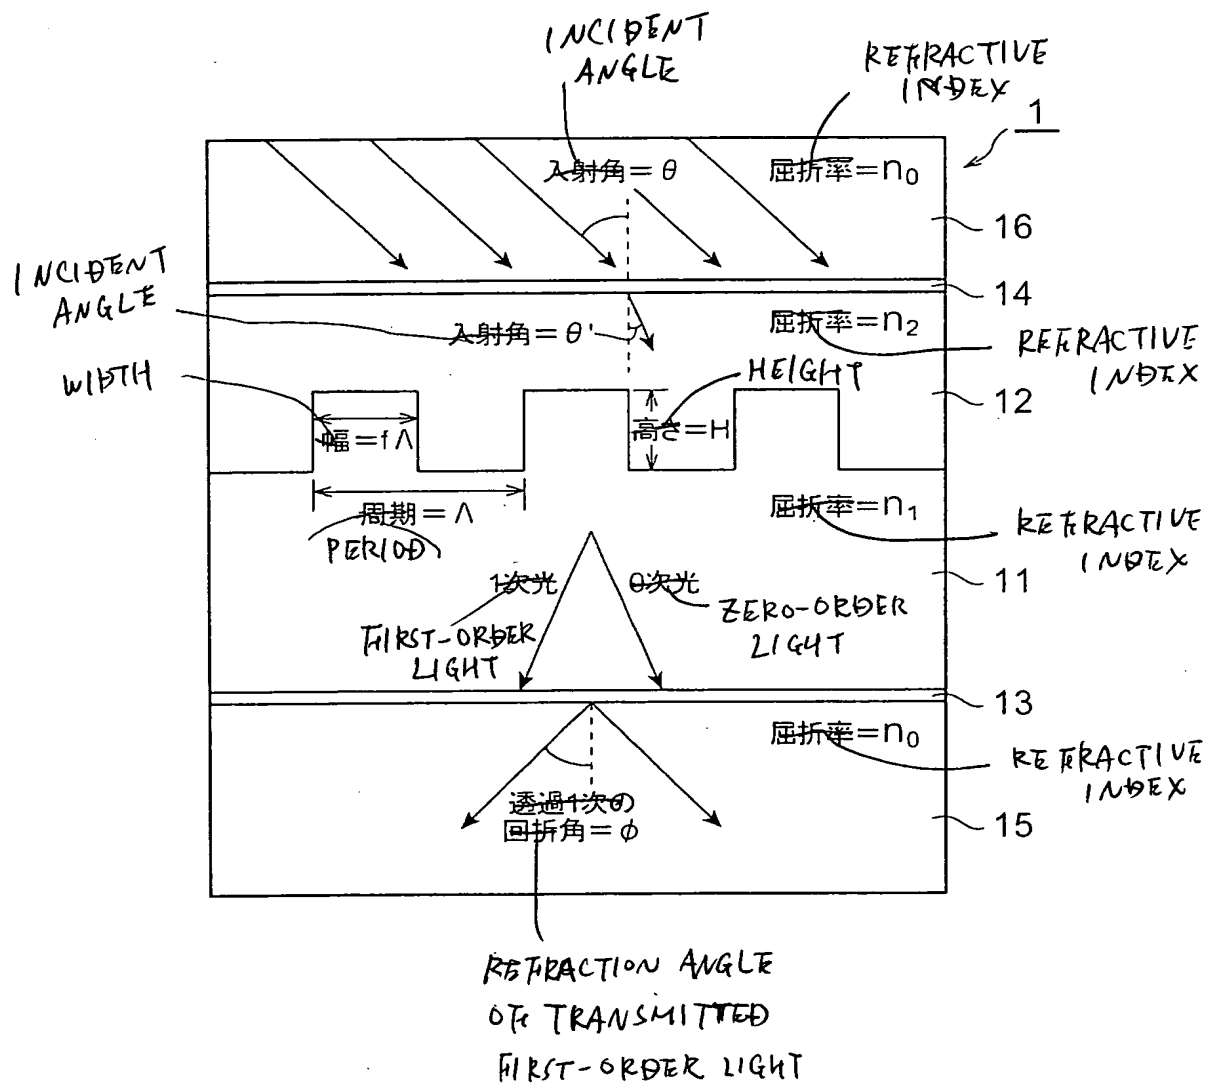 INCIDENT
ANGLE
REFRACTIVE
INDEX
1
入射角=θ
屈折率=n0
16
INCIDENT
ANGLE
14
入射角=θ'
屈折率=n2
REFRACTIVE
INDEX
WIDTH
HEIGHT
12
幅=fΛ
高さ=H
周期=Λ
PERIOD
屈折率=n1
REFRACTIVE
INDEX
11
1次光
0次光
FIRST-ORDER
LIGHT
ZERO-ORDER
LIGHT
13
屈折率=n0
REFRACTIVE
INDEX
透過1次の
回折角=φ
15
REFRACTION ANGLE
OF TRANSMITTED
FIRST-ORDER LIGHT